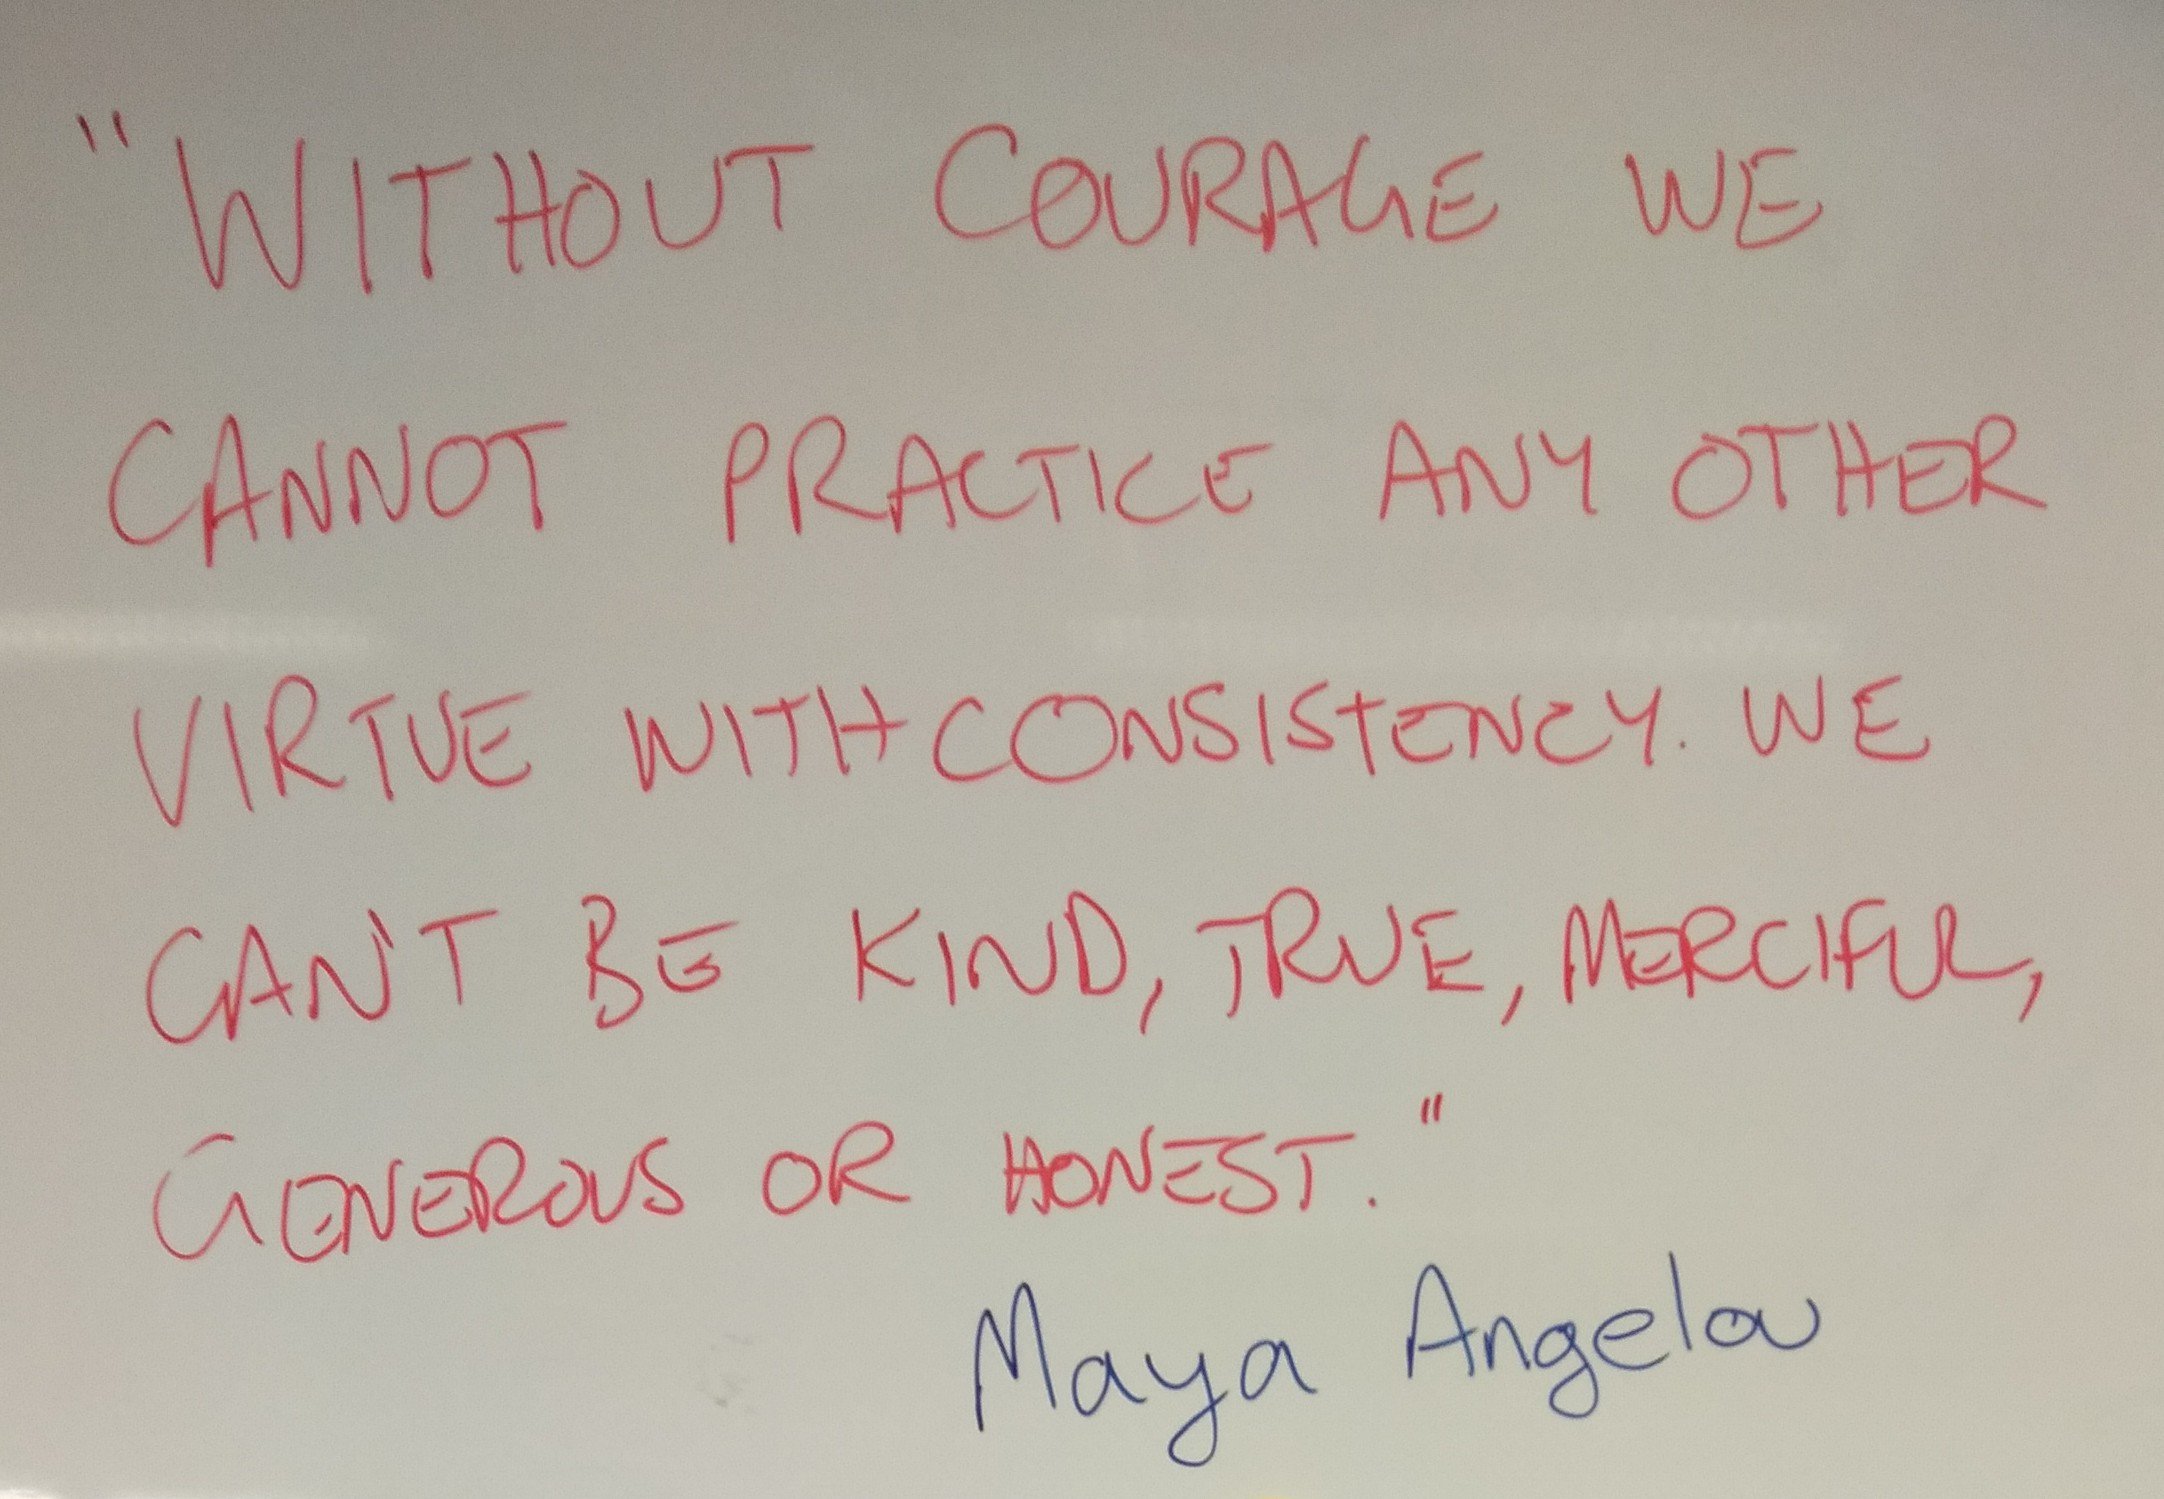 "WITHOUT COURAGE WE
CANNOT PRACTICE ANY OTHER
VIRTUE WITH CONSISTENCY. WE
CAN'T BE KIND, TRUE, MERCIFUL,
GENEROUS OR HONEST."
Maya Angelou